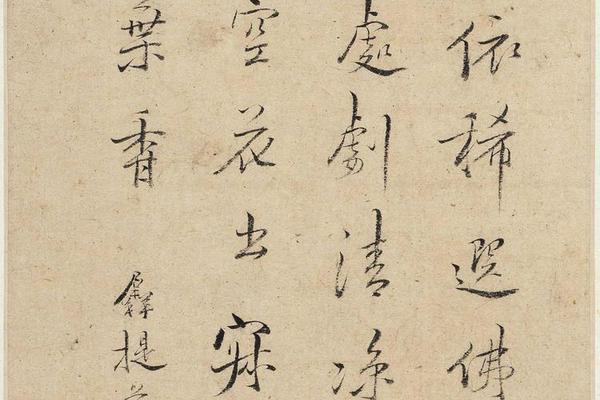 依稀選佛
處劇清涼
空花出寐
葉香
羼提